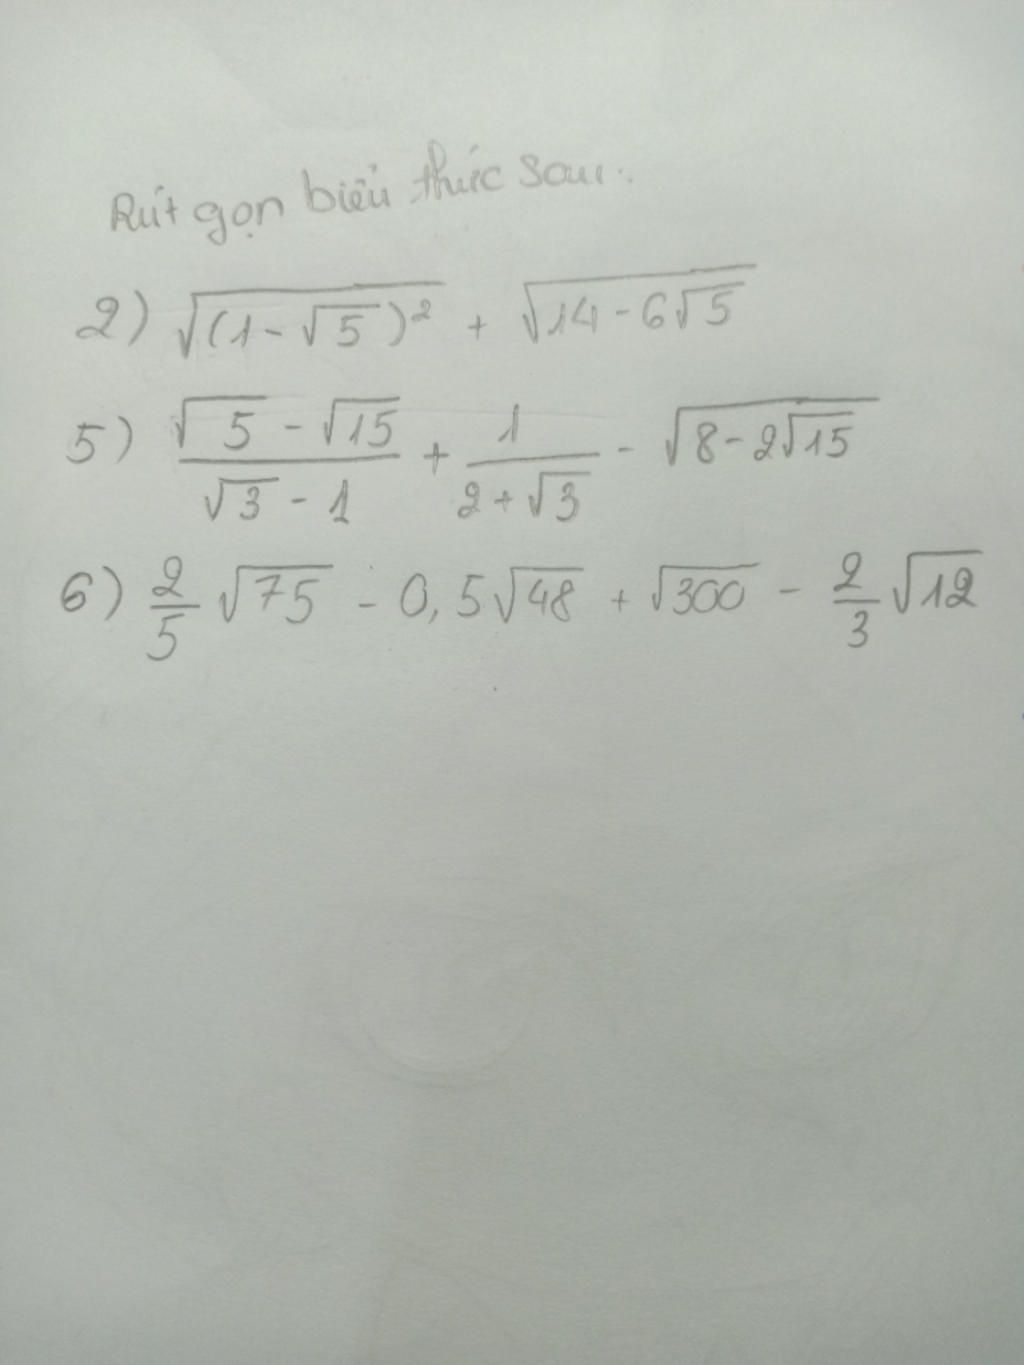 Rút gọn biểu thức sau:
2) √((1-√5)²) + √(14-6√5)
5) (√5 - √15)/(√3 - 1) + 1/(2+√3) - √(8-2√15)
6) 2/5 √75 - 0,5√48 + √300 - 2/3 √12